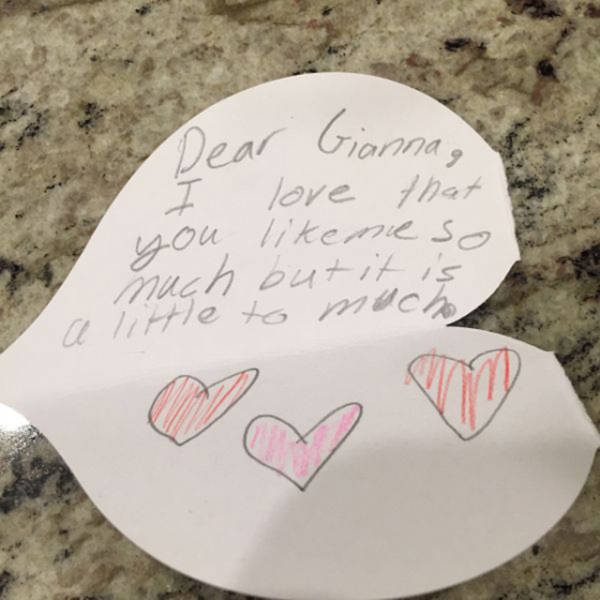 Dear Gianna,
I love that
you like me so
much but it is
a little to much.